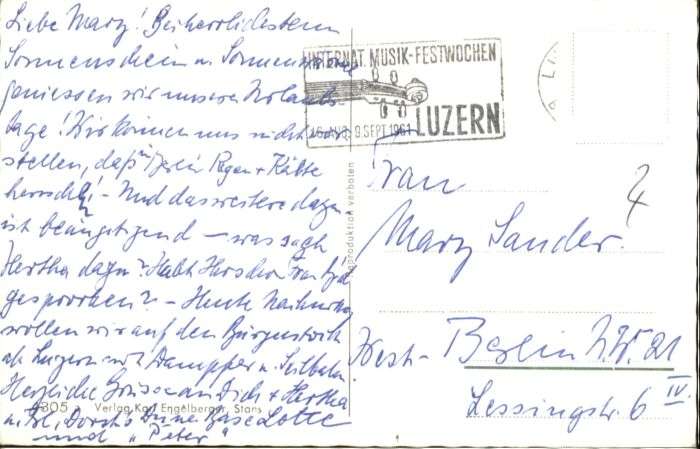 Liebe Mary! Bei herrlichstem
Sonnenschein u. Sonnenwärme
geniessen wir unseren Urlaubs-
tage! Wir können uns nicht vor-
stellen, daß in Berlin Regen + Kälte
herrscht! - Und das weitere dazu
ist beängstigend - was sagt
Hertha dazu? Habt Ihr schon
gesprochen? - Heute Nachmittag
wollen wir auf den Bürgenstock
ab Luzern mit Dampfer u. Seilbahn
Herzliche Grüsse an Dich + Hertha
u. Frl. Deine Base Lotte
und "Peter"
4305 Verlag Karl Engelberger, Stans
Reproduktion verboten
INTERNAT. MUSIK-FESTWOCHEN
16. AUG. 9. SEPT. 1961 LUZERN
Frau
Mary Sander.
4
West- Berlin N.W. 21
Lessingstr. 6 IV.